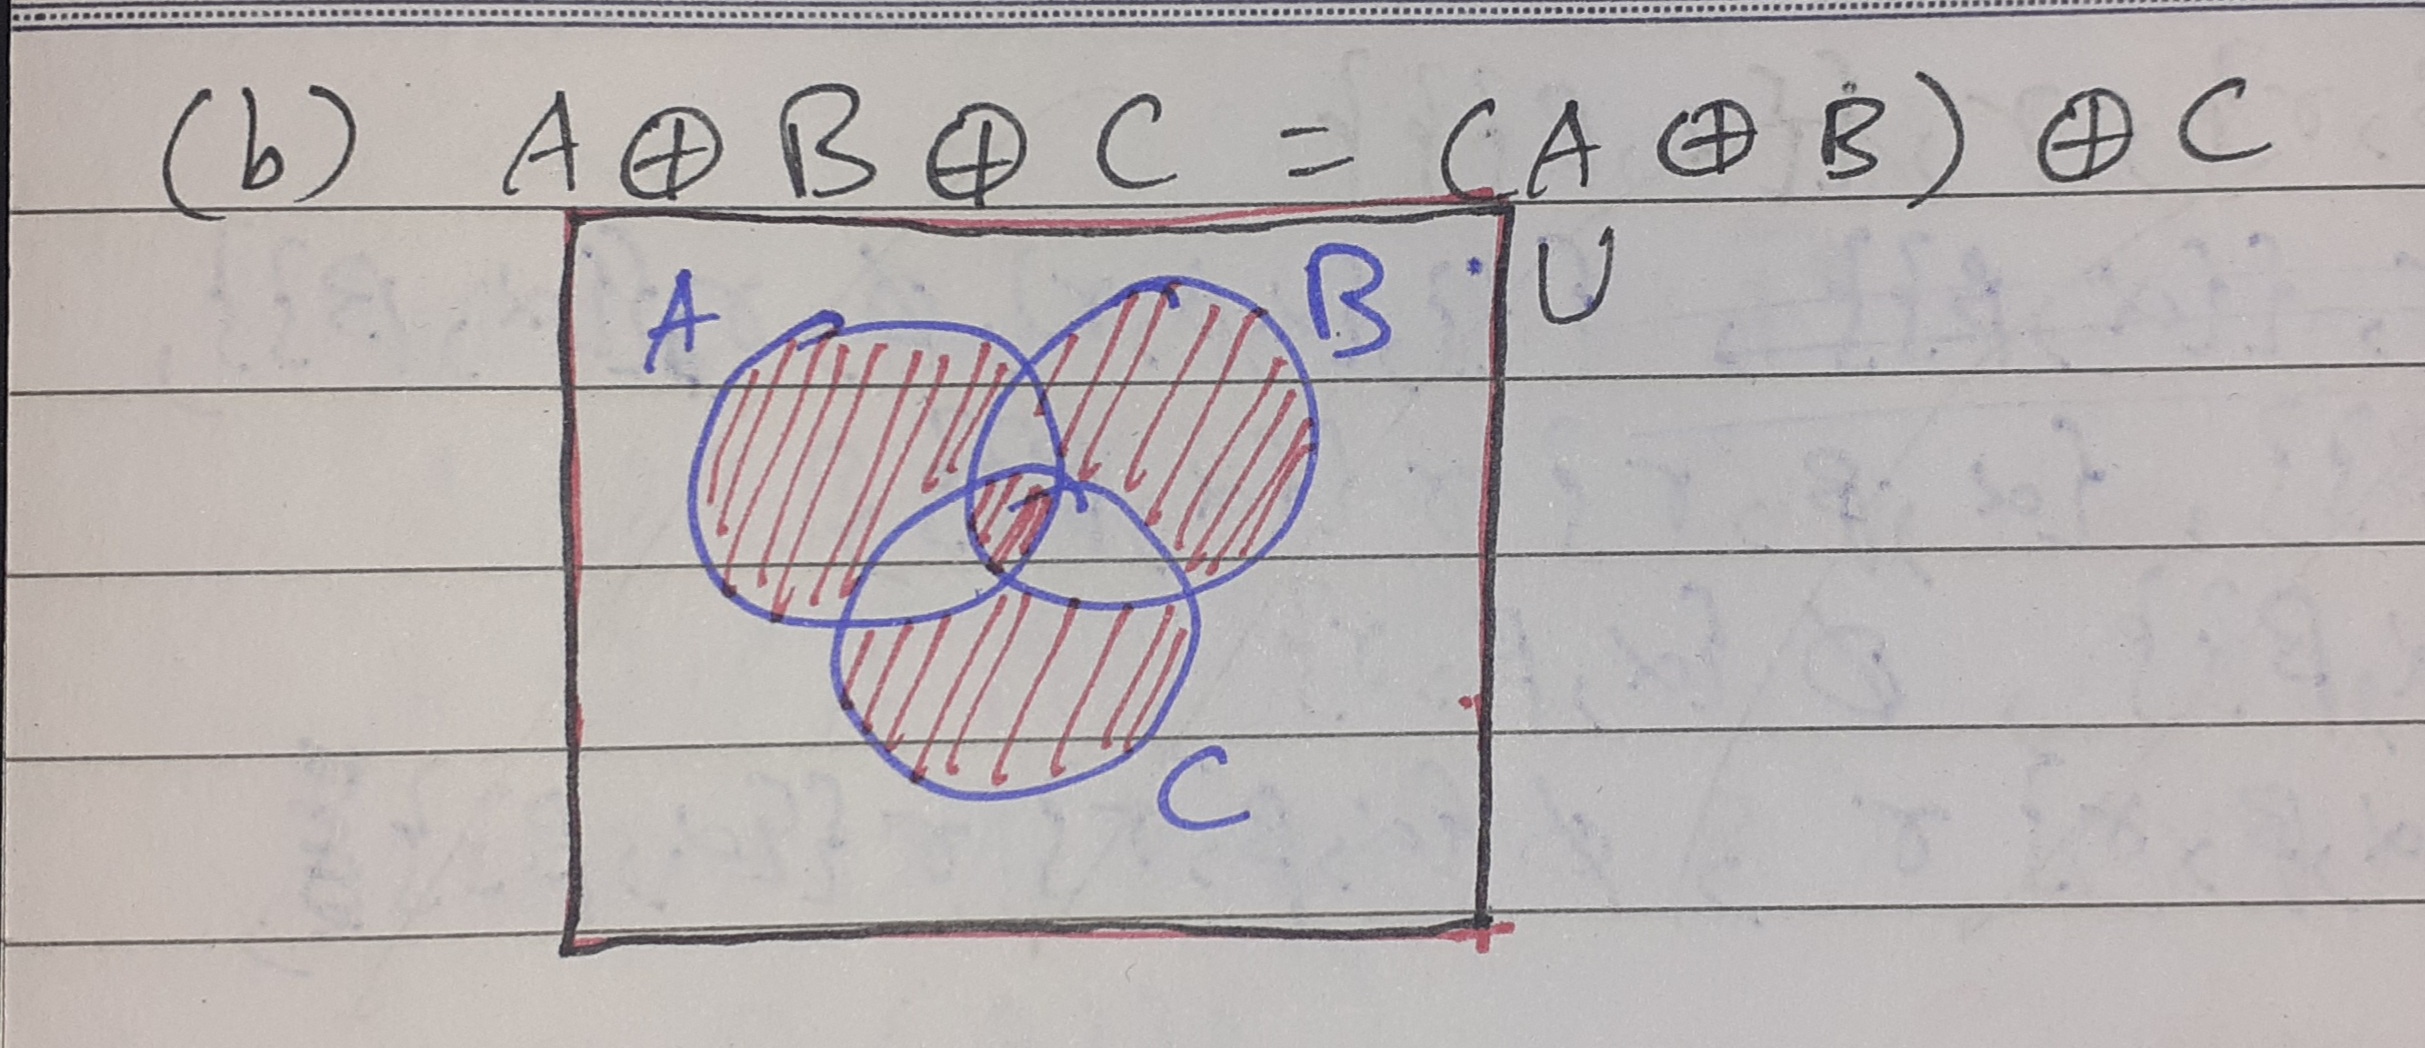 (b) A ⊕ B ⊕ C = (A ⊕ B) ⊕ C
U
A
B
C